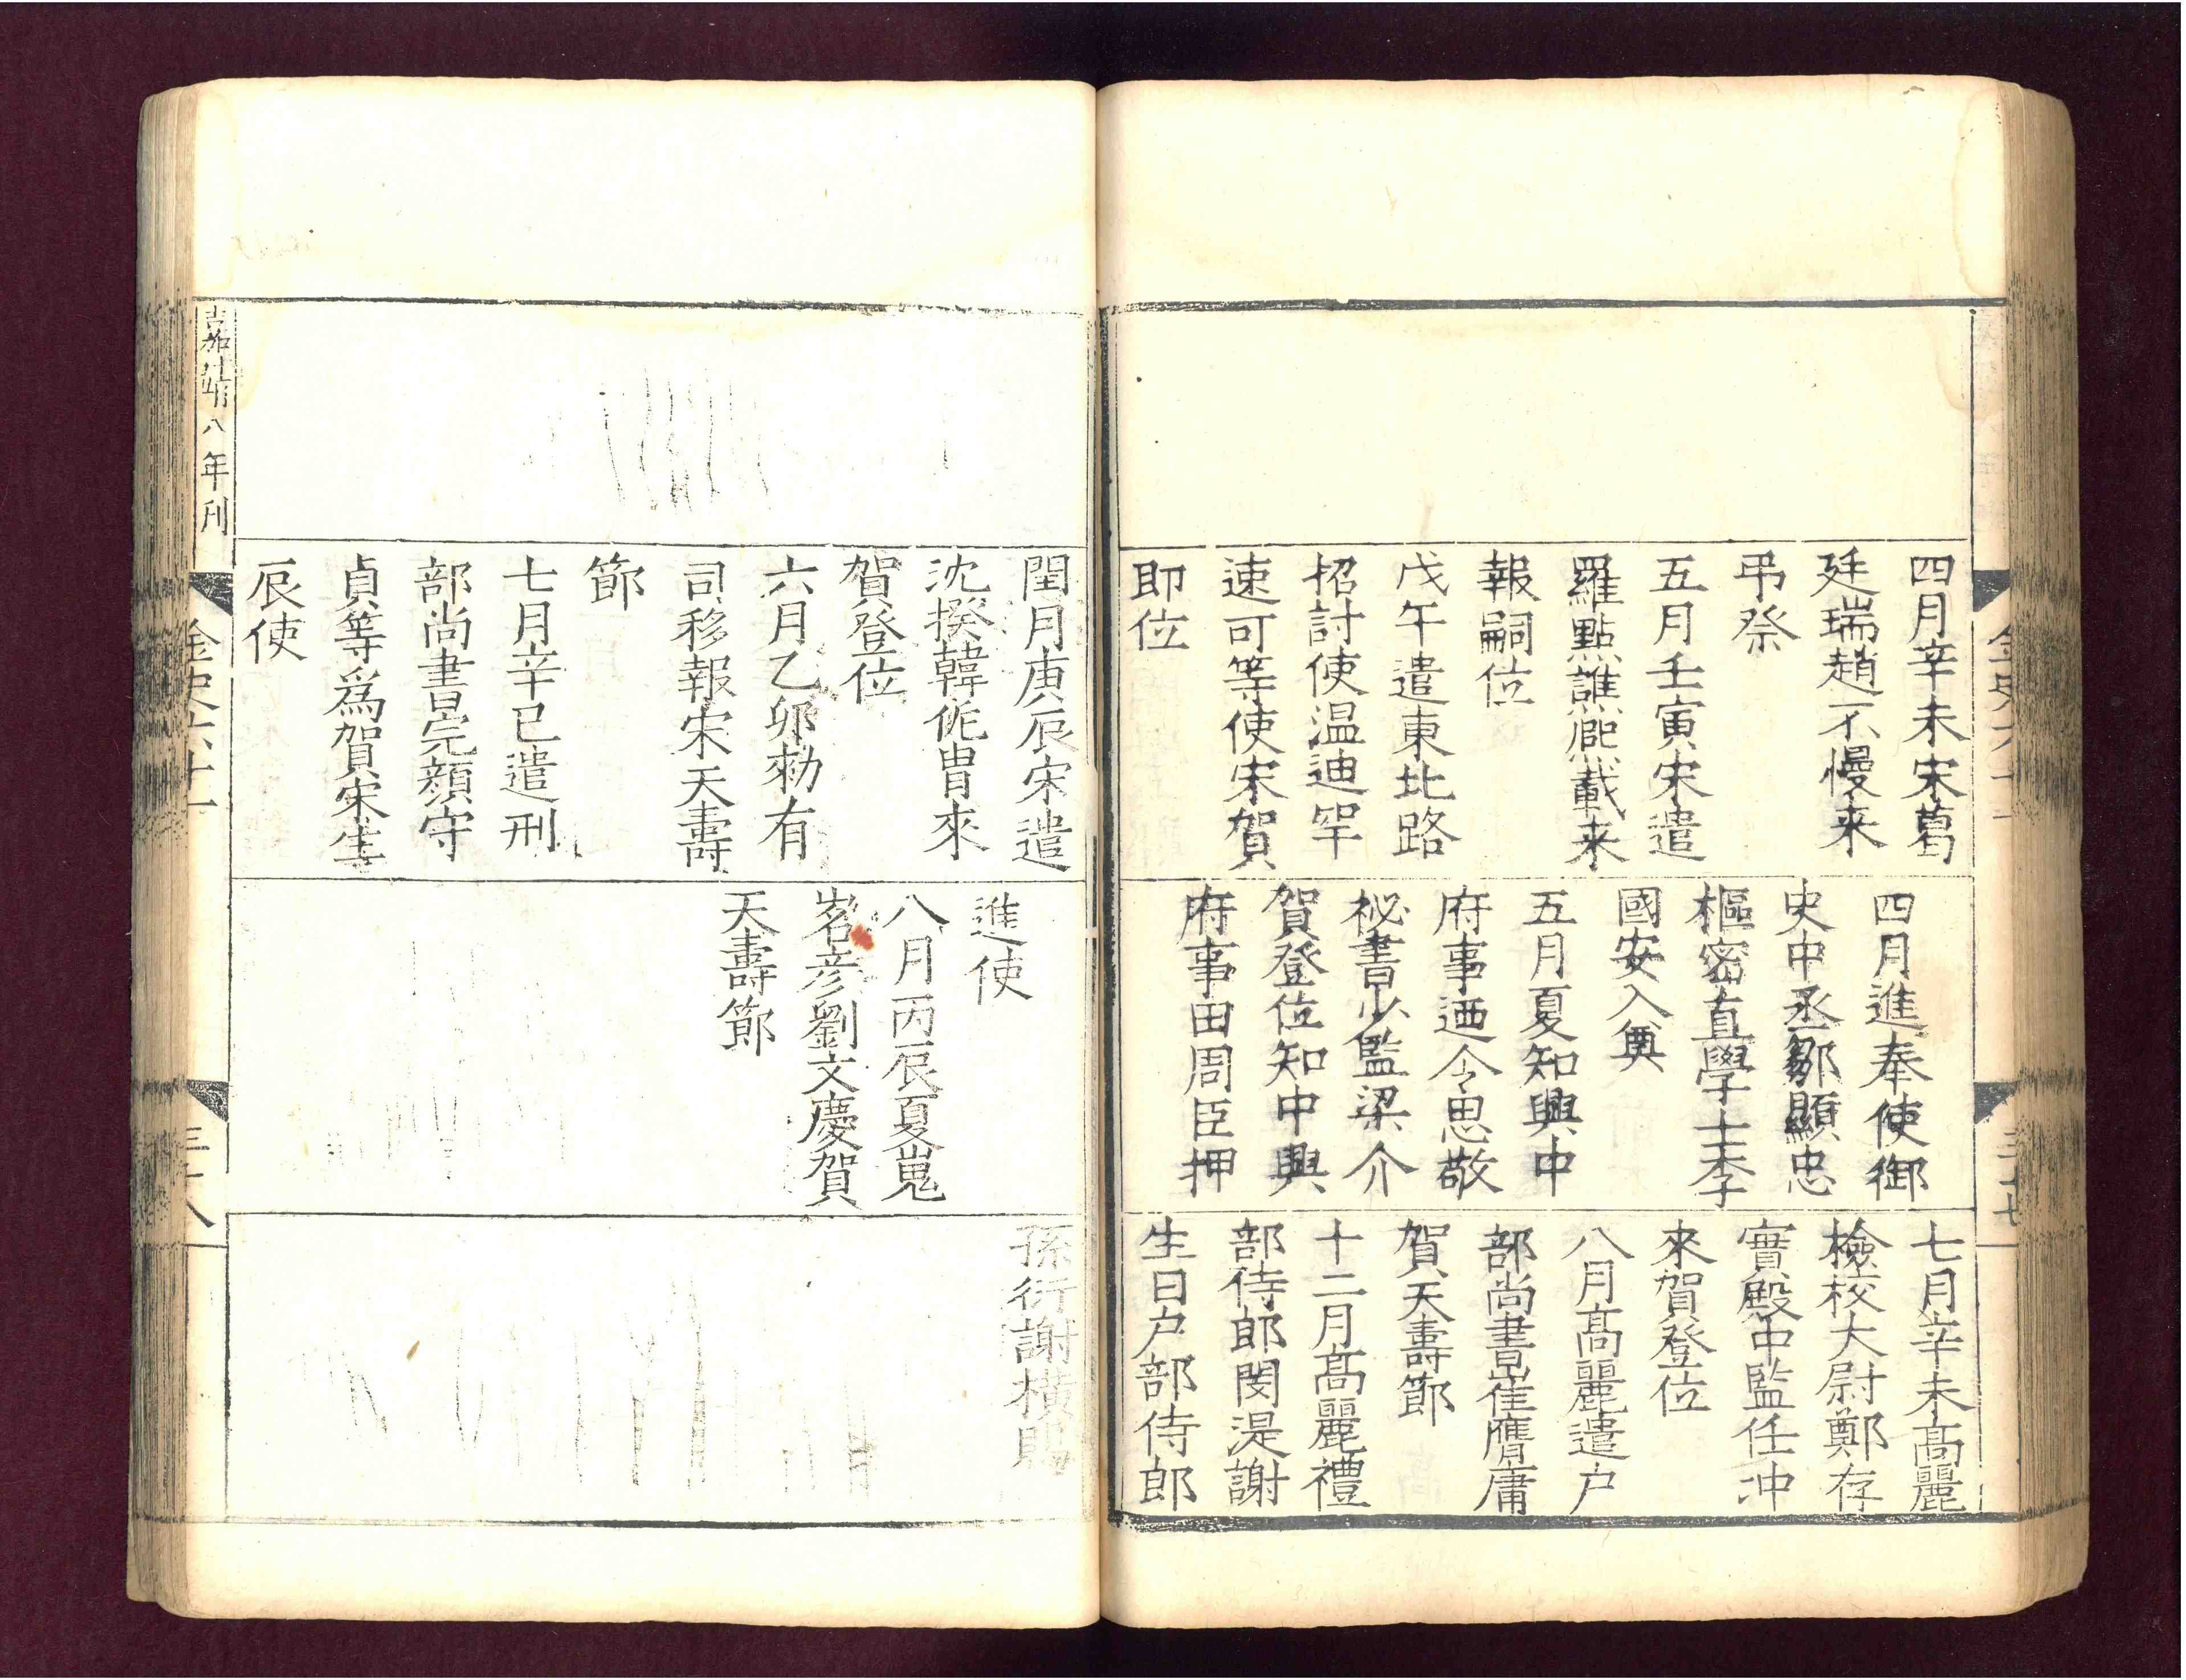 四月辛未宋葛
廷瑞趙不慢来
弔祭
五月壬寅宋遣
羅點譙熈載来
報嗣位
戊午遣東北路
招討使温迪罕
速可等使宋賀
即位
四月進奉使御
史中丞鄒顯忠
樞密直學士李
國安入奠
五月夏知興中
府事迺令思敬
祕書少監梁介
賀登位知中興
府事田周臣押
七月辛未髙麗
檢校大尉鄭存
實殿中監任冲
來賀登位
八月髙麗遣户
部尚書崔膺庸
賀天壽節
十二月髙麗禮
部侍郎閔湜謝
生日户部侍郎
金史六十二
三十七
閏月庚辰宋遣
沈揆韓侂胄來
賀登位
六月乙卯勑有
司移報宋天壽
節
七月辛巳遣刑
部尚書完顔守
貞等爲賀宋生
辰使
進使
八月丙辰夏嵬
㟭彦劉文慶賀
天壽節
孫衍謝横賜
嘉靖八年刊
金史六十二
三十八